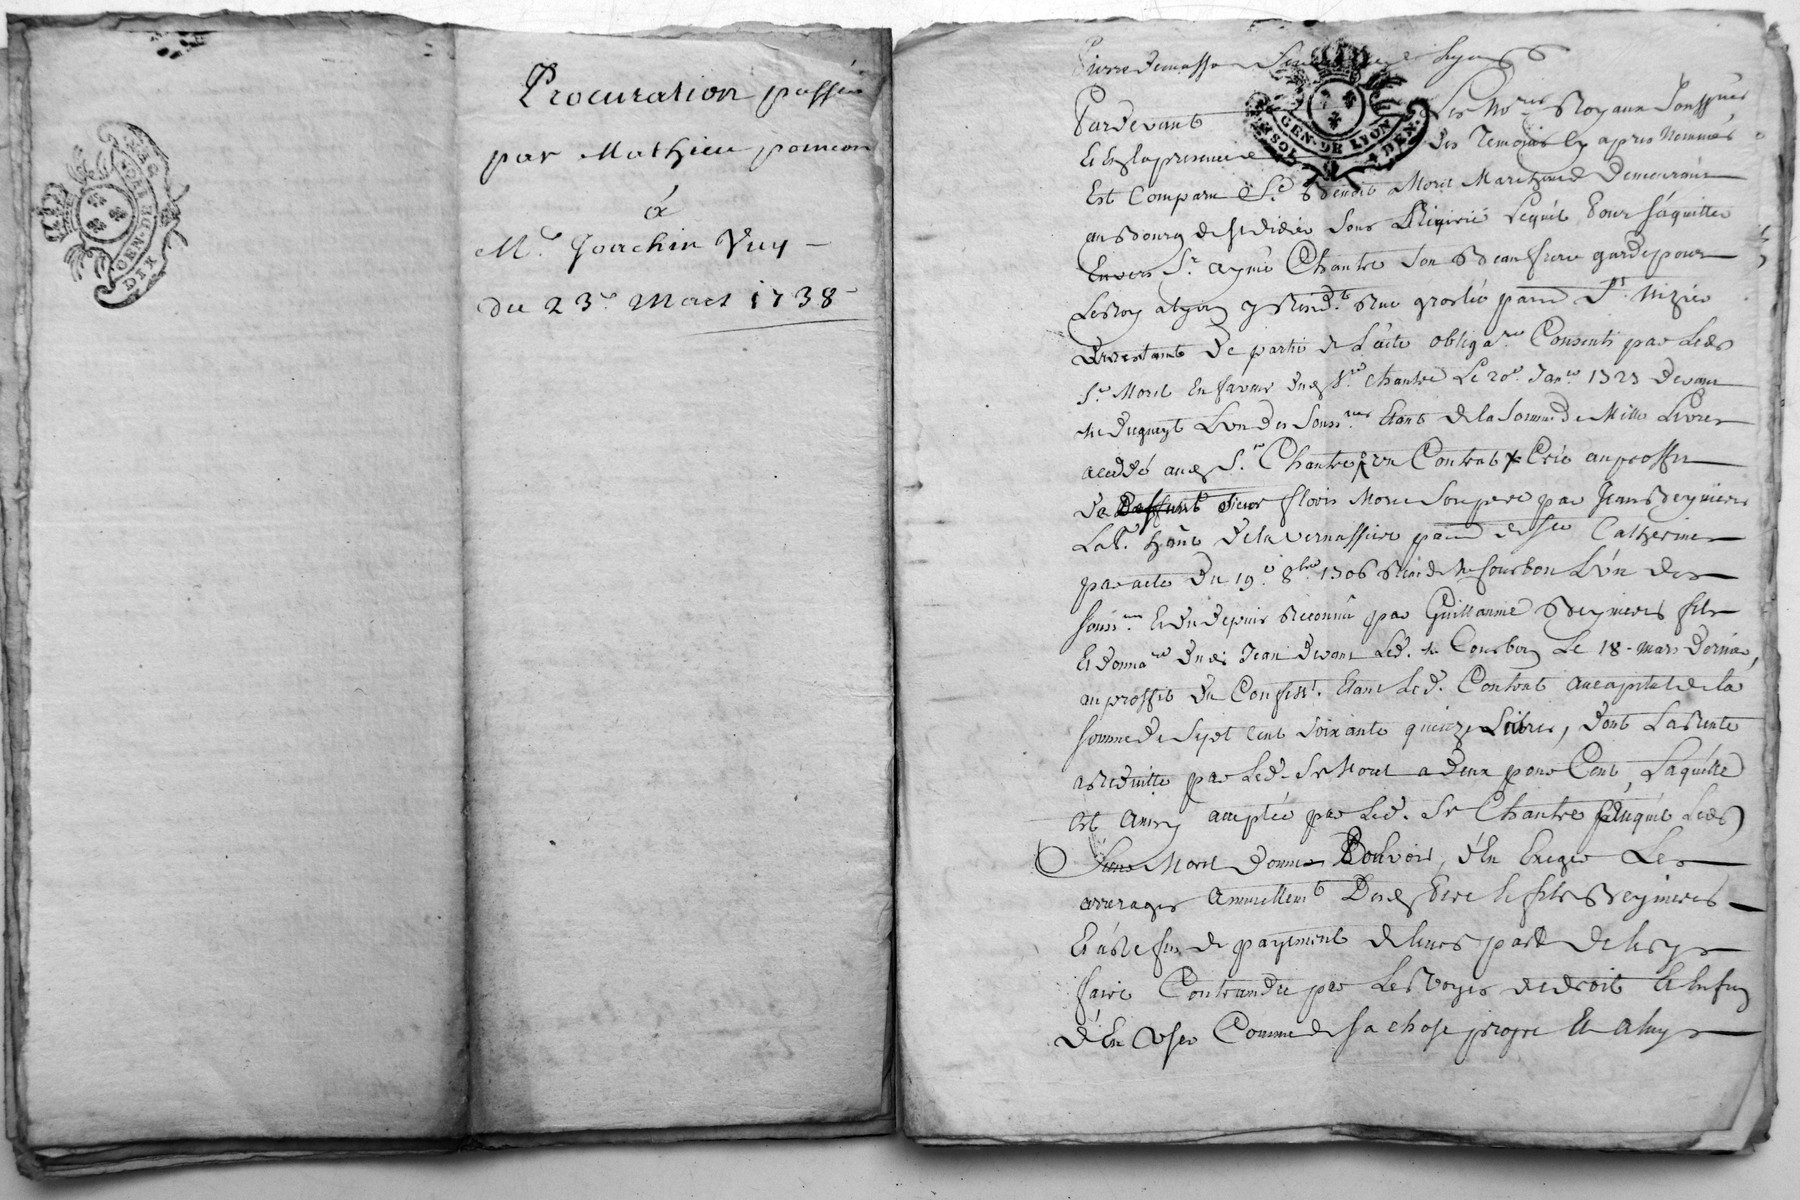 Procuration passée
par Mathieu poncon
à
Me. Joachin Vuy
du 23e Mars 1738
GEN. DE
DEX
Pierre
SOLS GEN. DE LYON 4 DEN.
Pardevant Les No.res Royaux Soussignés
Et En la presence des Temoins Cy apres Nommés
Est Comparu Sr. Benoit Morel Marchand Demeurant
au Bourg de St didier sous Riverie Lequel Pour s'aquitter
Envers Sr. aymé Chantre Son Beau frere garde pour
Le Roy a Lyon y Resid.t Rue grolée parr. St. Nizier
De partie de L'acte obliga.re Consenti par Led.
Sr. Morel En faveur dud. Sr. Chantre Le 20e. Jan.er 1723 devant
Me L'un des Souss.nés Etant de la Somme de Mille Livres
a cedé aud. Sr. Chantre Un Contrat Créé au proffit
de Deffunt sieur floris Morel Son pere par Jean Reynieres
Lab.r de la vernassiere parr. de Ste Catherine
par acte Du 19e. 8bre. 1706 Me fourbon L'un des
souss.nés Et Du depuis Reconnu par Guillaume Reynieres fils
Et donna.re Dud. Jean devant Led. Me Le 18 Mars dernier,
au proffit du Confess.t. Etant Led. Contrat au capital de la
somme de Sept Cent Soixante quinze Livres, dont La Rente
a Reduitte par Led. Sr Morel a deux pour Cent, Laquelle
Est Ainsy acceptée par Led. Sr Chantre auquel Led.
Sieur Morel donne Pouvoir, d'En Exiger Les
arrerages Annuellem.t Desd. Pere Et fils Reynieres
Et a deffaut de payement de leurs part de Les y
faire Contraindre par Les Voyes de droit Et Enfin
d'En User Comme de sa chose propre Et a luy